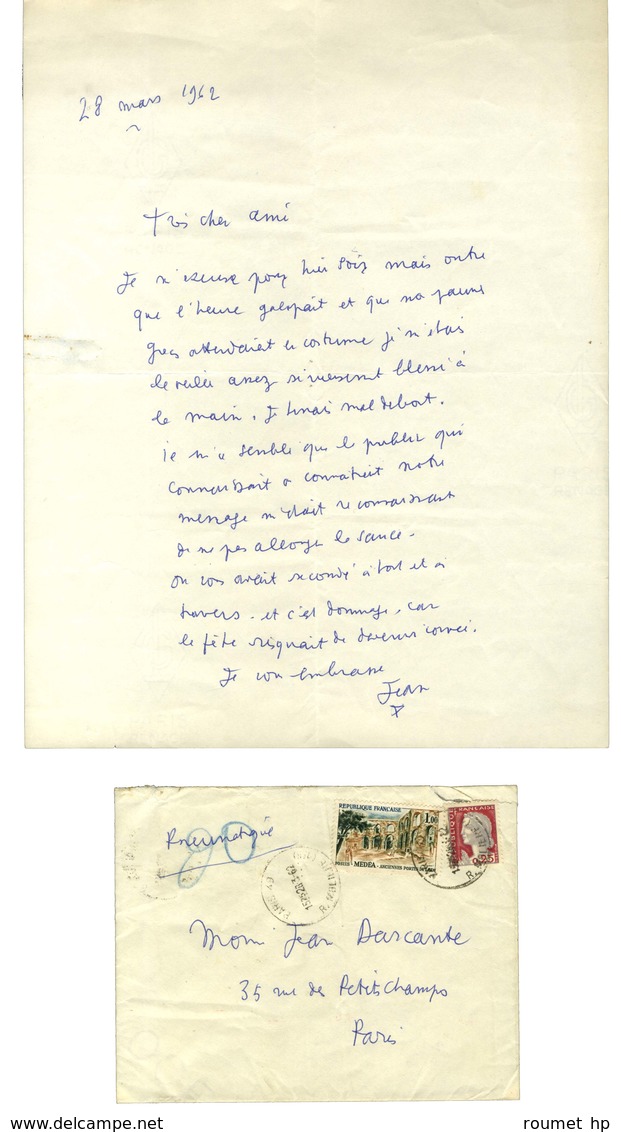 28 mars 1962
Très cher ami
Je m'excuse pour hier soir mais outre
que l'heure galopait et que nos jeunes
gens attendaient en costume je m'étais
la veille assez sérieusement blessé à
la main. Je tenais mal debout.
il m'a semblé que le public qui
connaissait a connaître notre
message m'était reconnaissant
de ne pas allonger la séance.
On vous avait secondé à tort et à
travers. et c'est dommage, car
la fête risquait de devenir corvée.
Je vous embrasse
Jean
Pneumatique
80
REPUBLIQUE FRANÇAISE
1,00
POSTES - MEDEA - ANCIENNES PORTES DE
FRANÇAISE
0,25
28-3 62
Jean Dascante
35 rue des Petits Champs
Paris
roumet hp